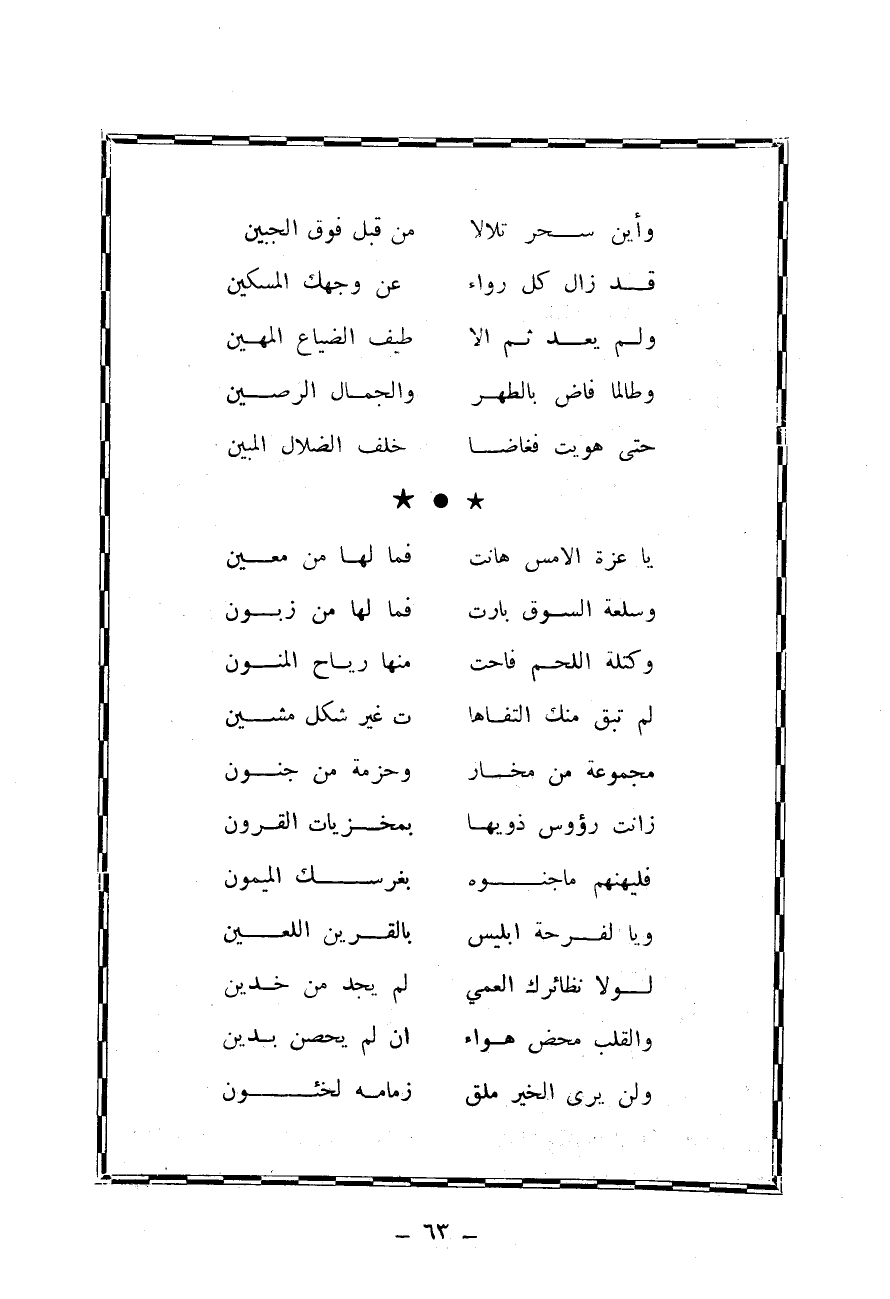 وأين سحر تلالا من قبل فوق الجبين
قد زال كل رواء عن وجهك المسكين
ولم يعد ثم الا طيف الضياع المهين
وطالما فاض بالطهر والجمال الرصين
حتى هويت فغاضا خلف الضلال المبين
★ ● ★
يا عزة الامس هانت فما لها من معين
وسلعة السوق بارت فما لها من زبون
وكتلة اللحم فاحت منها رياح المنون
لم تبق منك التفاها ت غير شكل مشين
مجموعة من مخار وحزمة من جنون
زانت رؤوس ذويها بمخزيات القرون
فليهنهم ماجنوه بغرسك الميمون
ويا لفرحة ابليس بالقرين اللعين
لولا نظائرك العمي لم يجد من خدين
والقلب محض هواء ان لم يحصن بدين
ولن يرى الخير ملق زمامه لخئون
- ٦٣ -